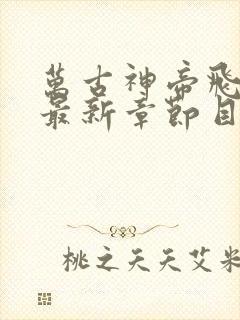 萬古神帝飛
最新章節目
桃之天天艾米